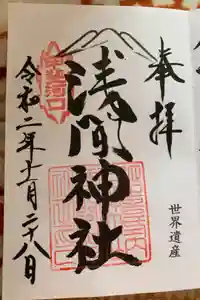 奉拝
世界遺産
浅間神社
甲斐河口
令和二年十一月二十八日